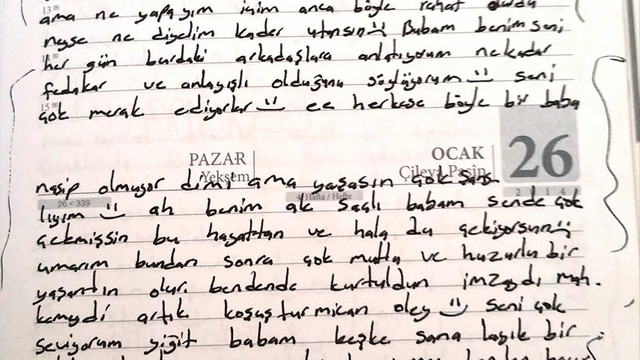 ama ne yapayım içim anca böyle rahat
neyse ne diyelim kader utansın Babam benim seni
her gün burdaki arkadaşlara anlatıyorum nekadar
fedakar ve anlayışlı olduğunu söylüyorum seni
çok merak ediyorlar ee herkese böyle bir baba
PAZAR
Yekşem
OCAK
Çileya Paşin
26
26 < 339
4. Hafta / Hefte
2 0 1 4
nasip olmuyor dimi ama yaşasın çok şans
lıyım ah benim ak saçlı babam sende çok
çekmişsin bu hayattan ve hala da çekiyorsun
umarım bundan sonra çok mutlu ve huzurlu bir
yaşantın olur. bendende kurtuldun imzaydı mah.
kemeydi artık koşuşturmican oley seni çok
seviyorum yiğit babam keşke sana layık bir